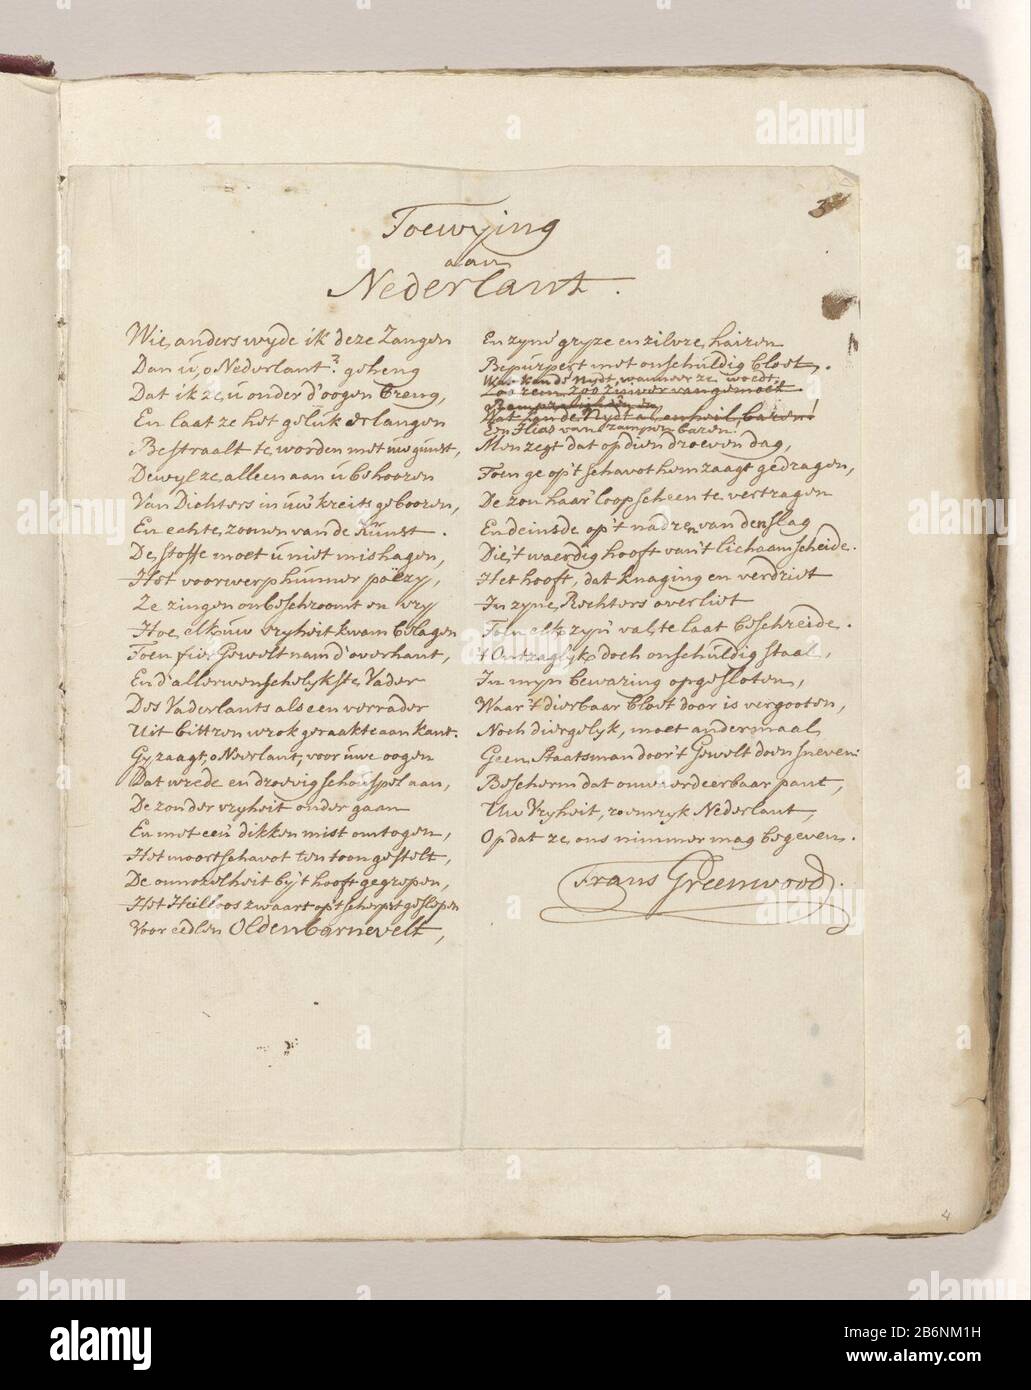 Toewijing
aan
Nederlant.
Wie anders wyde ik deze Zangen
Dan ú, o Nederlant? geheng
Dat ik ze ú onder d'oogen breng,
En laat ze het geluk erlangen
Bestraalt te worden met uwe gunst,
Dewyl ze alleen aan ú behooren
Van Dichters in úw kreits geboren,
En echte zoonen van de Kúnst.
De stoffe moet ú niet mishagen,
Het voorwerp hunner poëzy,
Ze zingen onbeschroomt en vry
Hoe elk uw vryheit kwam belagen
Toen fier Gewelt nam d'overhant,
En d'allerwenschelykste Vader
Des Vaderlants als een verrader
Uit bittren wrok geraakte aan kant.
Gy zaagt, o Neerlant, voor úwe oogen
Dat wrede en droevig schoúspel aan,
De zonder vryheit onder gaan
En met een dikken mist omtogen,
Het moortschavot ten toon gestelt,
De onnozelheit by 't hooft gegrepen,
Het Heilloos zwaart op't scherpst geslepen
Voor eedlen Oldenbarnevelt,
En zyne gryze en zilvre hairen
Bepúrpert met onschúldig bloet.
Wat kan de Nydt, wanneer ze woedt,
Een Ilias van rampen baren!
Men zegt dat op dien droeven dag,
Toen ge op't schavot hem zaagt gedragen,
De zon haar loop scheen te vertragen
En deinsde op't nadren van den slag
Die 't waerdig hooft van't lichaam scheide.
Het hooft, dat knaging en verdriet
In zyne Rechters overliet
Toen elk zyn val te laat beschreide.
't Ontzaglyk doch onschúldig staal,
In myn bewaring opgesloten,
Waar 't dierbaar bloet door is vergooten,
Noch diergelyk, moet andermaal
Geen Staatsman door't Gewelt doen sneven:
Bescherm dat onwaerdeerbaar pant,
Uw Vryheit, roemryk Nederlant,
Op dat ze ons nimmer mag begeven.
Frans Greenwood.
4
alamy
Image ID: 2B6NM1H
www.alamy.com